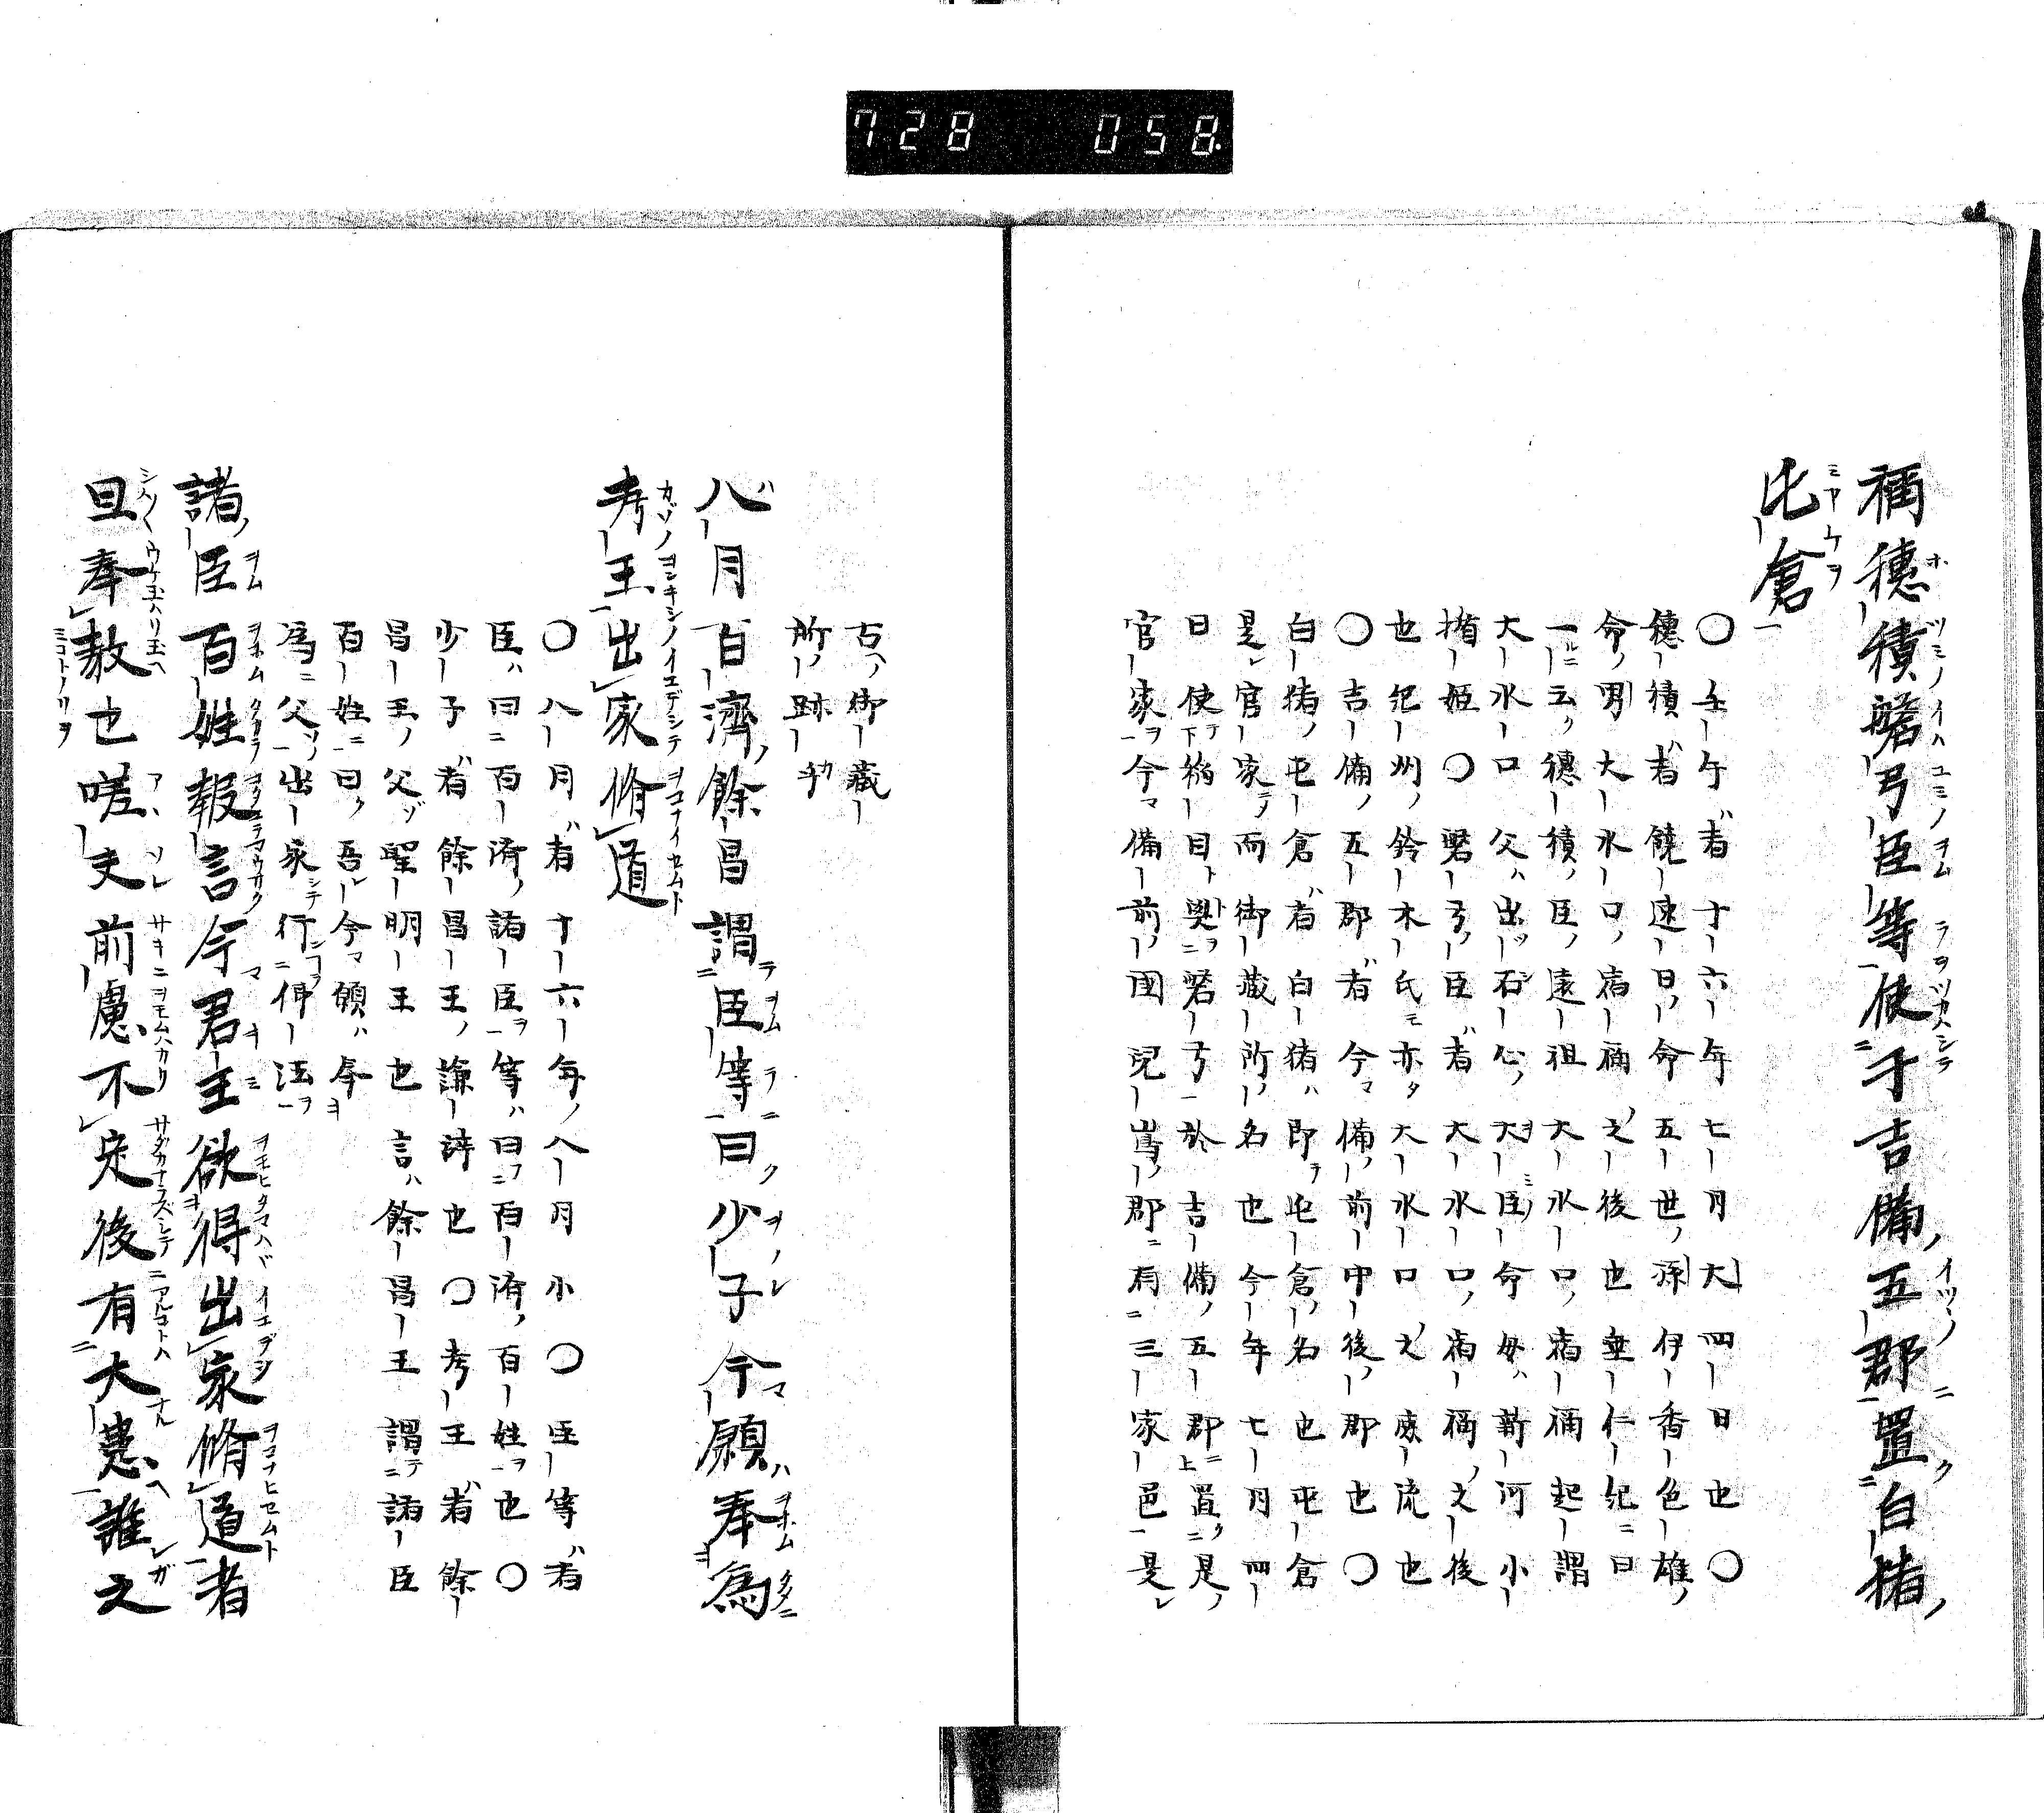 728 058
禰穂積磐弓臣等使于吉備五郡置白猪
屯倉
〇壬午者十六年七月大四日也〇
穗積者饒速日命五世孫伊香色雄
命男大水口宿禰之後也垂仁紀曰
一云穗積臣遠祖大水口宿禰起謂
大水口父出石心大臣命母新河小
楯姫〇磐弓臣者大水口宿禰之後
也紀州鈴木氏亦大水口之庶流也
〇吉備五郡者今備前中後郡也〇
白猪屯倉者白猪即屯倉名也屯倉
是官家而御藏所名也今年七月四
日使稻目與磐弓於吉備五郡置是
官家今備前國兒嶌郡有三家邑是
古御藏
所跡
八月百濟餘昌謂臣等曰少子今願奉爲
考王出家脩道
〇八月者十六年八月小〇臣等者
臣曰百濟諸臣等曰百濟百姓也〇
少子者餘昌王謙詩也〇考王者餘
昌王父聖明王也言餘昌王謂諸臣
百姓曰吾今願奉
爲父出家行佛法
諸臣百姓報言今君王欲得出家脩道者
且奉敎也嗟夫前慮不定後有大患誰之